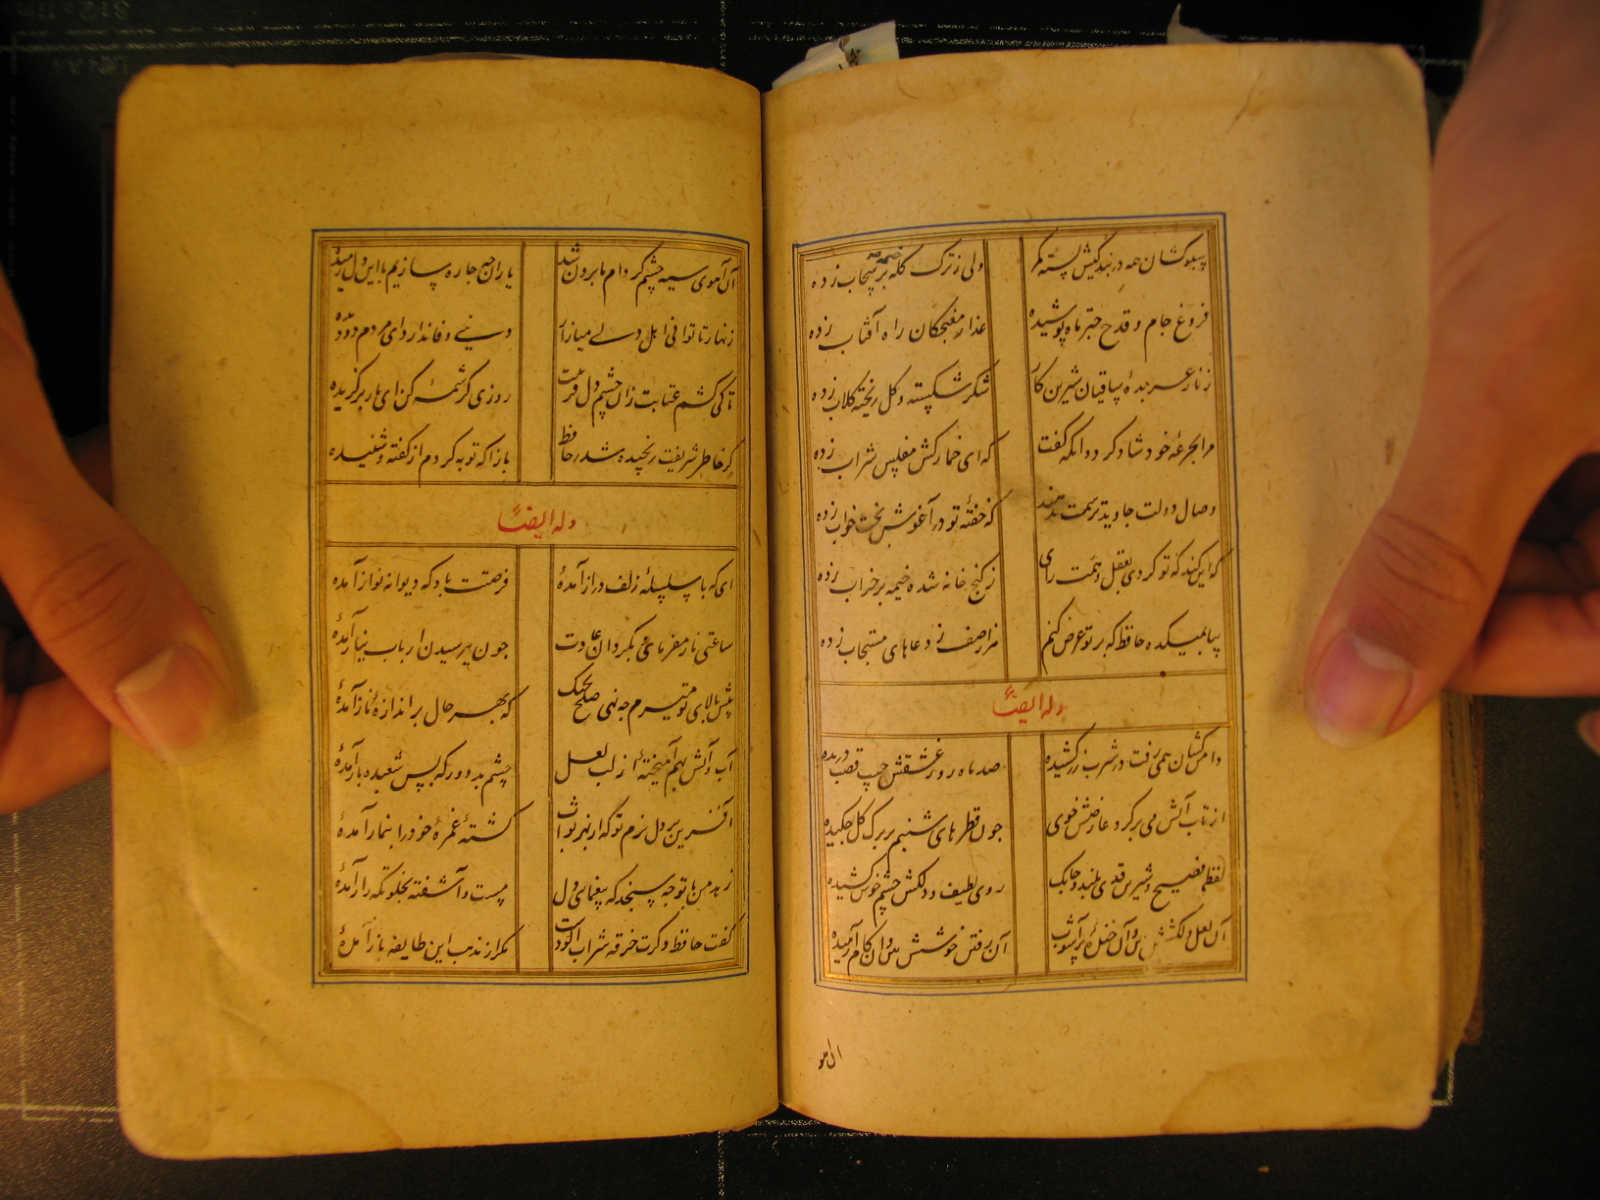 سبوکشان همه در بندگیش بسته کمر
ولی ز ترک کله خیمه بر سحاب زده
فروغ جام و قدح حبر ماه پوشیده
عذار مغبچکان راه آفتاب زده
ز ناز عربده ساقیان شیرین کار
شکر شکسته و کل ریخته کلاب زده
مرا بجرعه خود شاد کرد و انکه گفت
که ای خمارکش مفلس شراب زده
وصال دولت جاوید ترسمت ندهند
که خفته تو در آغوش بخت خواب زده
که این کند که تو کردی بعقل و همت رای
ز کنج خانه شده خیمه بر خراب زده
بیا بمیکده حافظ که بر تو عرض کنم
هزار صف ز دعاهای مستجاب زده
وله ایضاً
دامن کشان همی رفت در شرب زرکشیده
صد ماه رو ز عشقش جیب قصب دریده
از تاب آتش می بر کرد عارضش خوی
جون قطرهای شبنم بر برک کل جکیده
لفظ فصیح و شیرین قدی بلند و جابک
روی لطیف و دلکش چشم خوش کشیده
آن لعل دلکشش بین وان خنده پر آشوب
آن رفتن خوشش بین وان کام آرمیده
ان اهو
آن آهوی سیه چشم کز دام ما برون شد
یاران چه جاره سازیم با این دل رمیده
زنهار تا توانی اهل دلی میازار
دنیی وفا ندارد ای مردم دو دیده
تا کی کشم عتابت زان چشم دل فریبت
روزی کرشمه کن ای یار برکزیده
کر خاطر شریفت رنجیده شد ز حافظ
باز آ که توبه کردم از کفته و شنیده
وله ایضاً
ای که با سلسله زلف دراز آمده
فرصتت باد که دیوانه نواز آمده
ساعتی ناز مفرمای و بکردان عادت
جون بپرسیدن ارباب نیاز آمده
پیش بالای تو میرم چه بهی صلح چه جنک
که بهر حال برازنده ناز آمده
آب و آتش بهم آمیخته از لب لعل
چشم بد دور که بس شعبده باز آمده
آفرین بر دل نرم تو که از بهر ثواب
کشته غمزه خود را بنماز آمده
زهد من با تو چه سنجد که بیغمای دلم
مست و آشفته بخلوتکه راز آمده
کفت حافظ دکرت خرقه شراب آلودست
مکر از مذهب این طایفه باز آمده